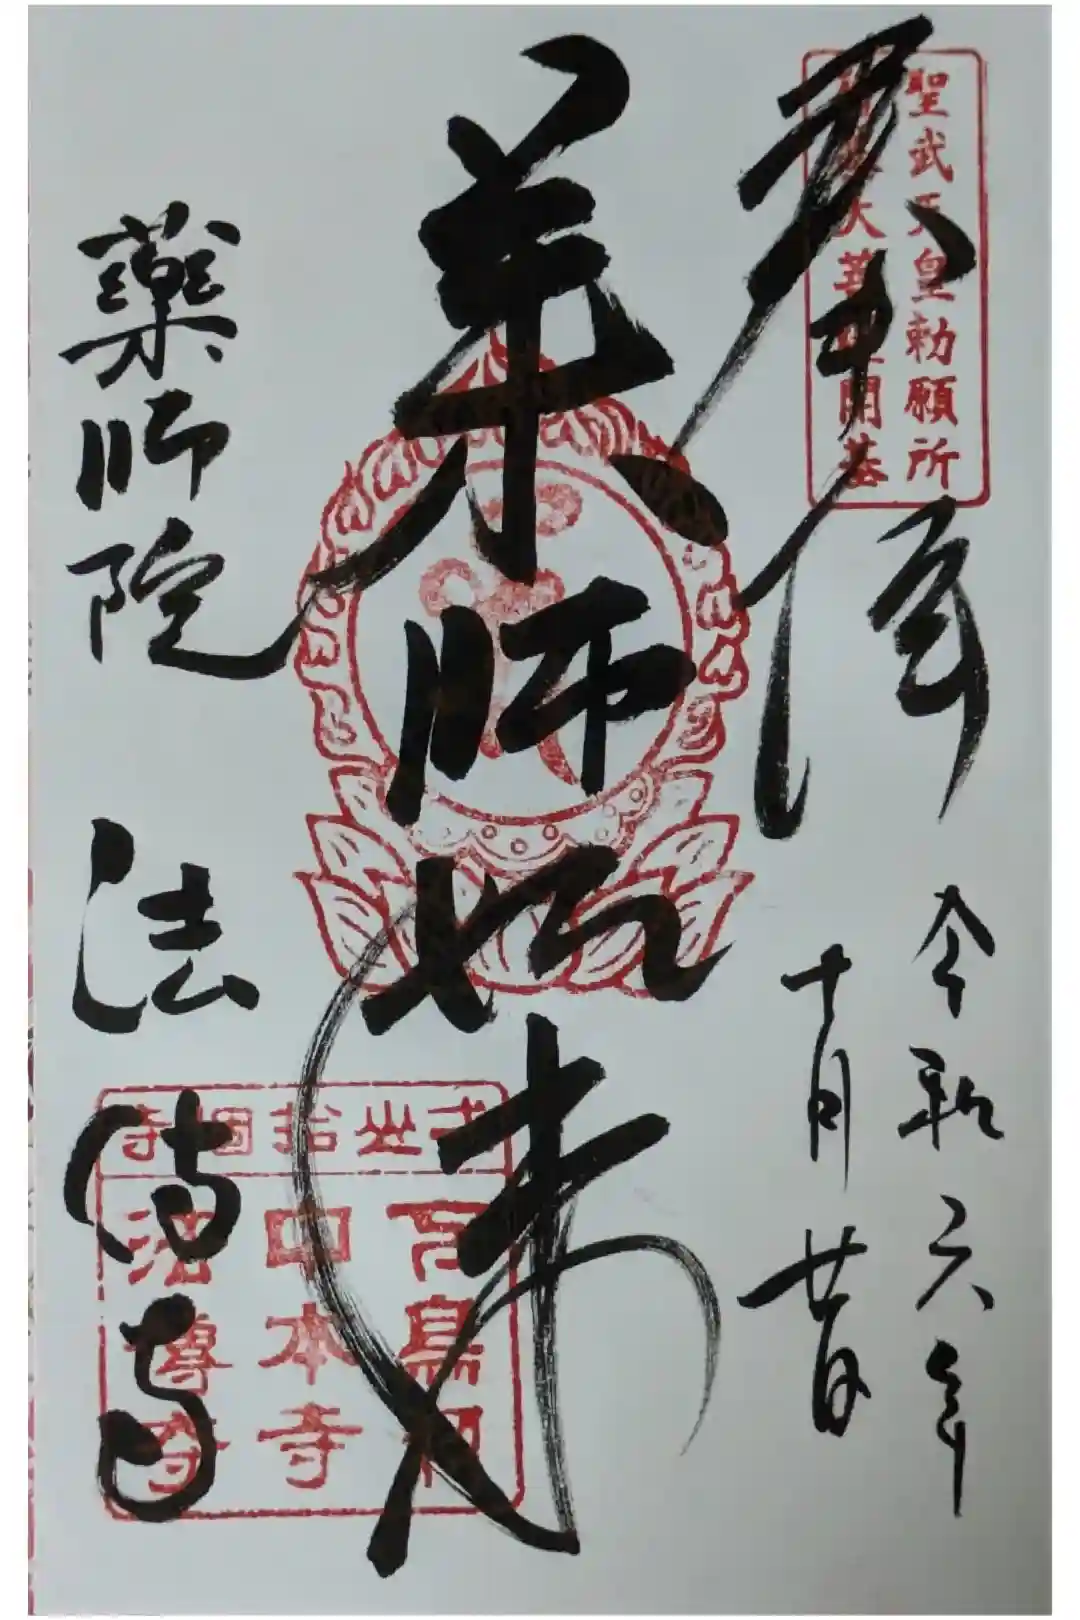 聖武天皇勅願所
行基大菩薩開基
奉拝
令和六年
十月廿日
薬師如来
藥師院 法傳寺
中本寺
法傳寺